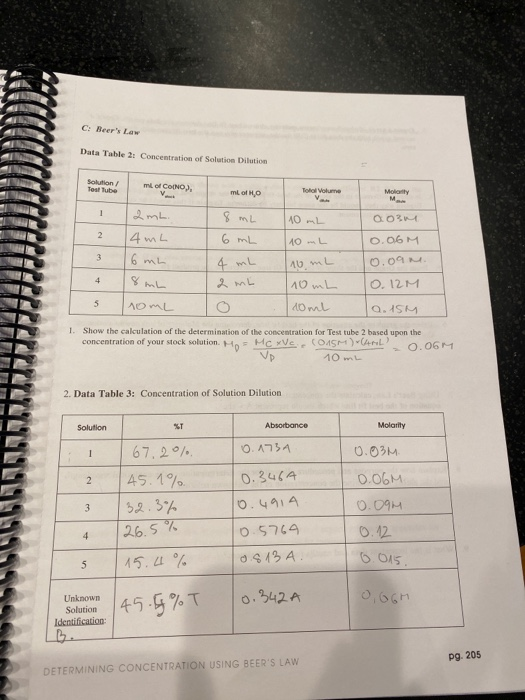 C: Beer's Law
Data Table 2: Concentration of Solution Dilution
Solution / Test Tube mL of Co(NO3)2 mL of H2O Total Volume Molarity
1 2 mL. 8 mL 10 mL 0.03M
2 4 mL 6 mL 10 mL 0.06M
3 6 mL 4 mL 10 mL 0.09M.
4 8 mL 2 mL 10 mL 0.12M
5 10mL O 10ml 0.15M
1. Show the calculation of the determination of the concentration for Test tube 2 based upon the
concentration of your stock solution. MD = MC x VC = (0.15M)x(4mL) = 0.06M
VD 10 mL
2. Data Table 3: Concentration of Solution Dilution
Solution %T Absorbance Molarity
1 67.2%. 0.173A 0.03M
2 45.1% 0.346A 0.06M
3 32.3% 0.491A 0.09M
4 26.5% 0.576A 0.12
5 15.4% 0.813A. 0.015.
Unknown Solution Identification: B. 45.5%T 0.342A 0.06M
DETERMINING CONCENTRATION USING BEER'S LAW
pg. 205